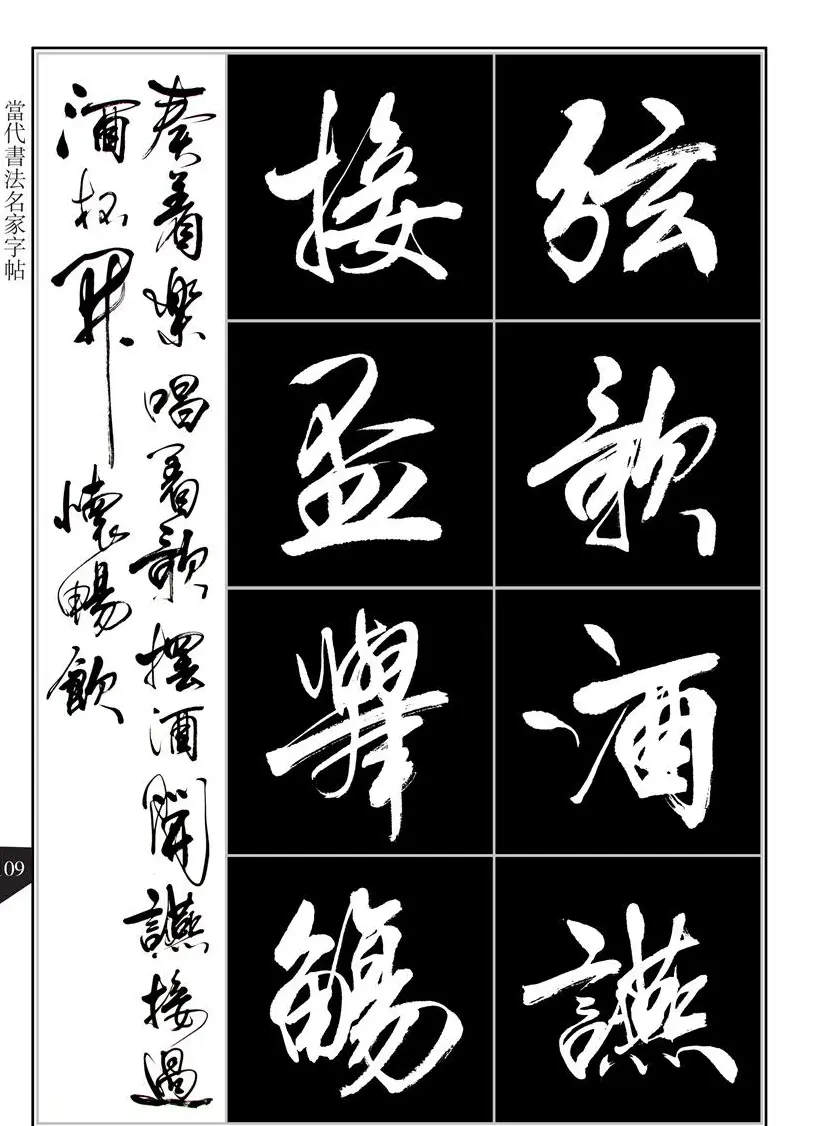 弦歌酒讌
接杯舉觴
奏着樂唱着歌擺酒開讌接過
酒杯開懷暢飲
當代書法名家字帖
109